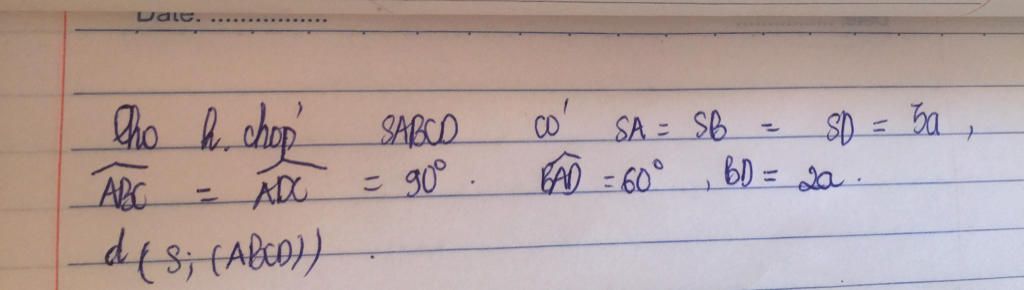 Date: ................
Cho h. chóp SABCD có SA = SB = SD = 5a,
ABC = ADC = 90°. BAD = 60°, BD = 2a.
d(S; (ABCD)).